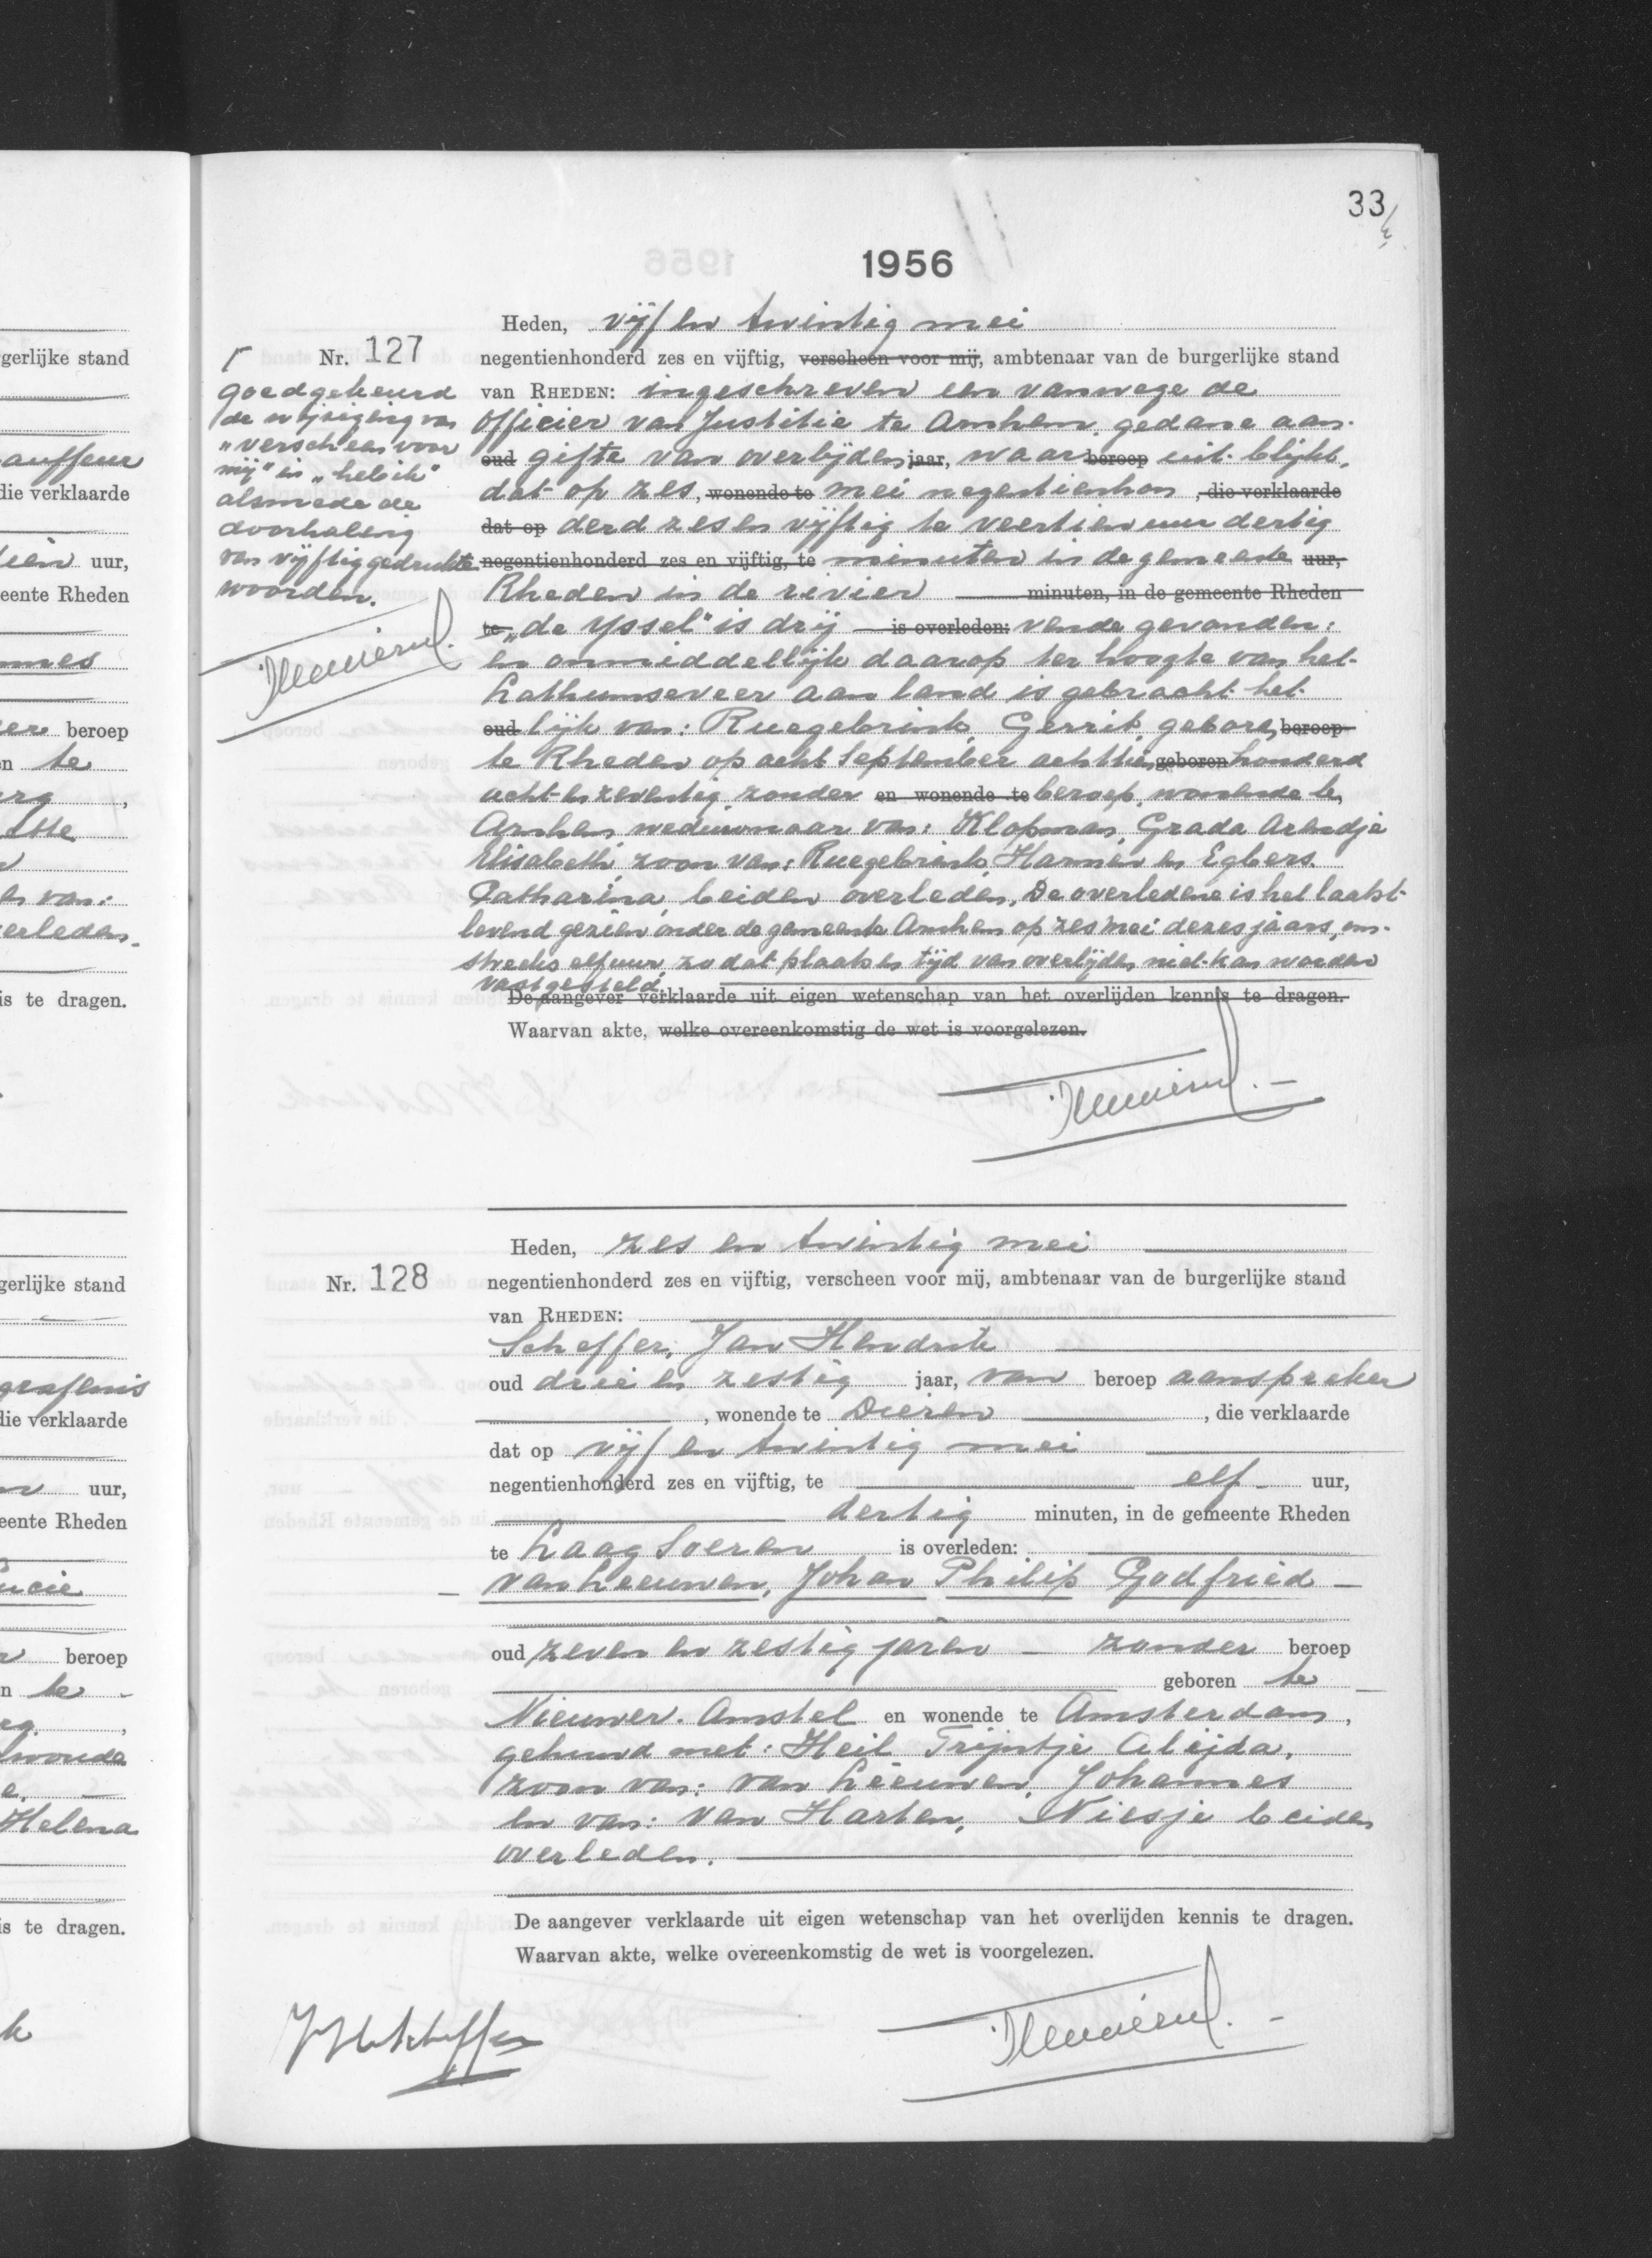 33
1956
Heden, vijf en twintig mei
Nr. 127
negentienhonderd zes en vijftig, verscheen voor mij, ambtenaar van de burgerlijke stand
van RHEDEN: ingeschreven een vanwege de
officier van Justitie te Arnhem, gedane aan-
oud gifte van overlijden jaar, waar beroep uit blijkt,
dat op zes, wonende te mei negentienhon , die verklaarde
dat op derd zes en vijftig te veertien uur dertig
negentienhonderd zes en vijftig, te minuten in de gemeente uur,
Rheden in de rivier minuten, in de gemeente Rheden
te „de Yssel" is drij is overleden: vende gevonden:
en onmiddellijk daarop ter hoogte van het
Lathumseveer aan land is gebracht het
oud lijk van: Ruegebrink, Gerrit, geboren, beroep
te Rheden op acht September achttien geboren honderd
acht en zeventig, zonder en wonende te beroep, wonende te,
Arnhem, weduwnaar van: Klopman, Grada Arendje
Elisabeth, zoon van: Ruegebrink, Harmen en Egbers.
Catharina, beiden overleden, De overledene is het laatst
levend gezien onder de gemeente Arnhem op zes mei dezes jaars, om-
streeks elf uur, zodat plaats en tijd van overlijden niet kan worden
vastgesteld.
De aangever verklaarde uit eigen wetenschap van het overlijden kennis te dragen.
Waarvan akte, welke overeenkomstig de wet is voorgelezen.
goedgekeurd
de wijziging van
„verscheen voor
mij" in „heb ik"
alsmede de
doorhaling
van vijftig gedrukte
woorden.
Heden, zes en twintig mei
Nr. 128
negentienhonderd zes en vijftig, verscheen voor mij, ambtenaar van de burgerlijke stand
van RHEDEN:
Scheffer, Jan Hendrik
oud drie en zestig jaar, van beroep aanspreker
, wonende te Dieren , die verklaarde
dat op vijf en twintig mei
negentienhonderd zes en vijftig, te elf uur,
dertig minuten, in de gemeente Rheden
te Laag Soeren is overleden:
van Leeuwen, Johan Philip Godfried
oud zeven en zestig jaren zonder beroep
geboren te
Nieuwer-Amstel en wonende te Amsterdam,
gehuwd met: Heil Trijntje Aleijda,
zoon van: van Leeuwen, Johannes
en van: van Harten, Niesje beiden
overleden.
De aangever verklaarde uit eigen wetenschap van het overlijden kennis te dragen.
Waarvan akte, welke overeenkomstig de wet is voorgelezen.
JHScheffer
gerlijke stand
auffeur
die verklaarde
uur,
eente Rheden
beroep
n te
is te dragen.
gerlijke stand
grafenis
die verklaarde
uur,
eente Rheden
beroep
n te
Helena
is te dragen.